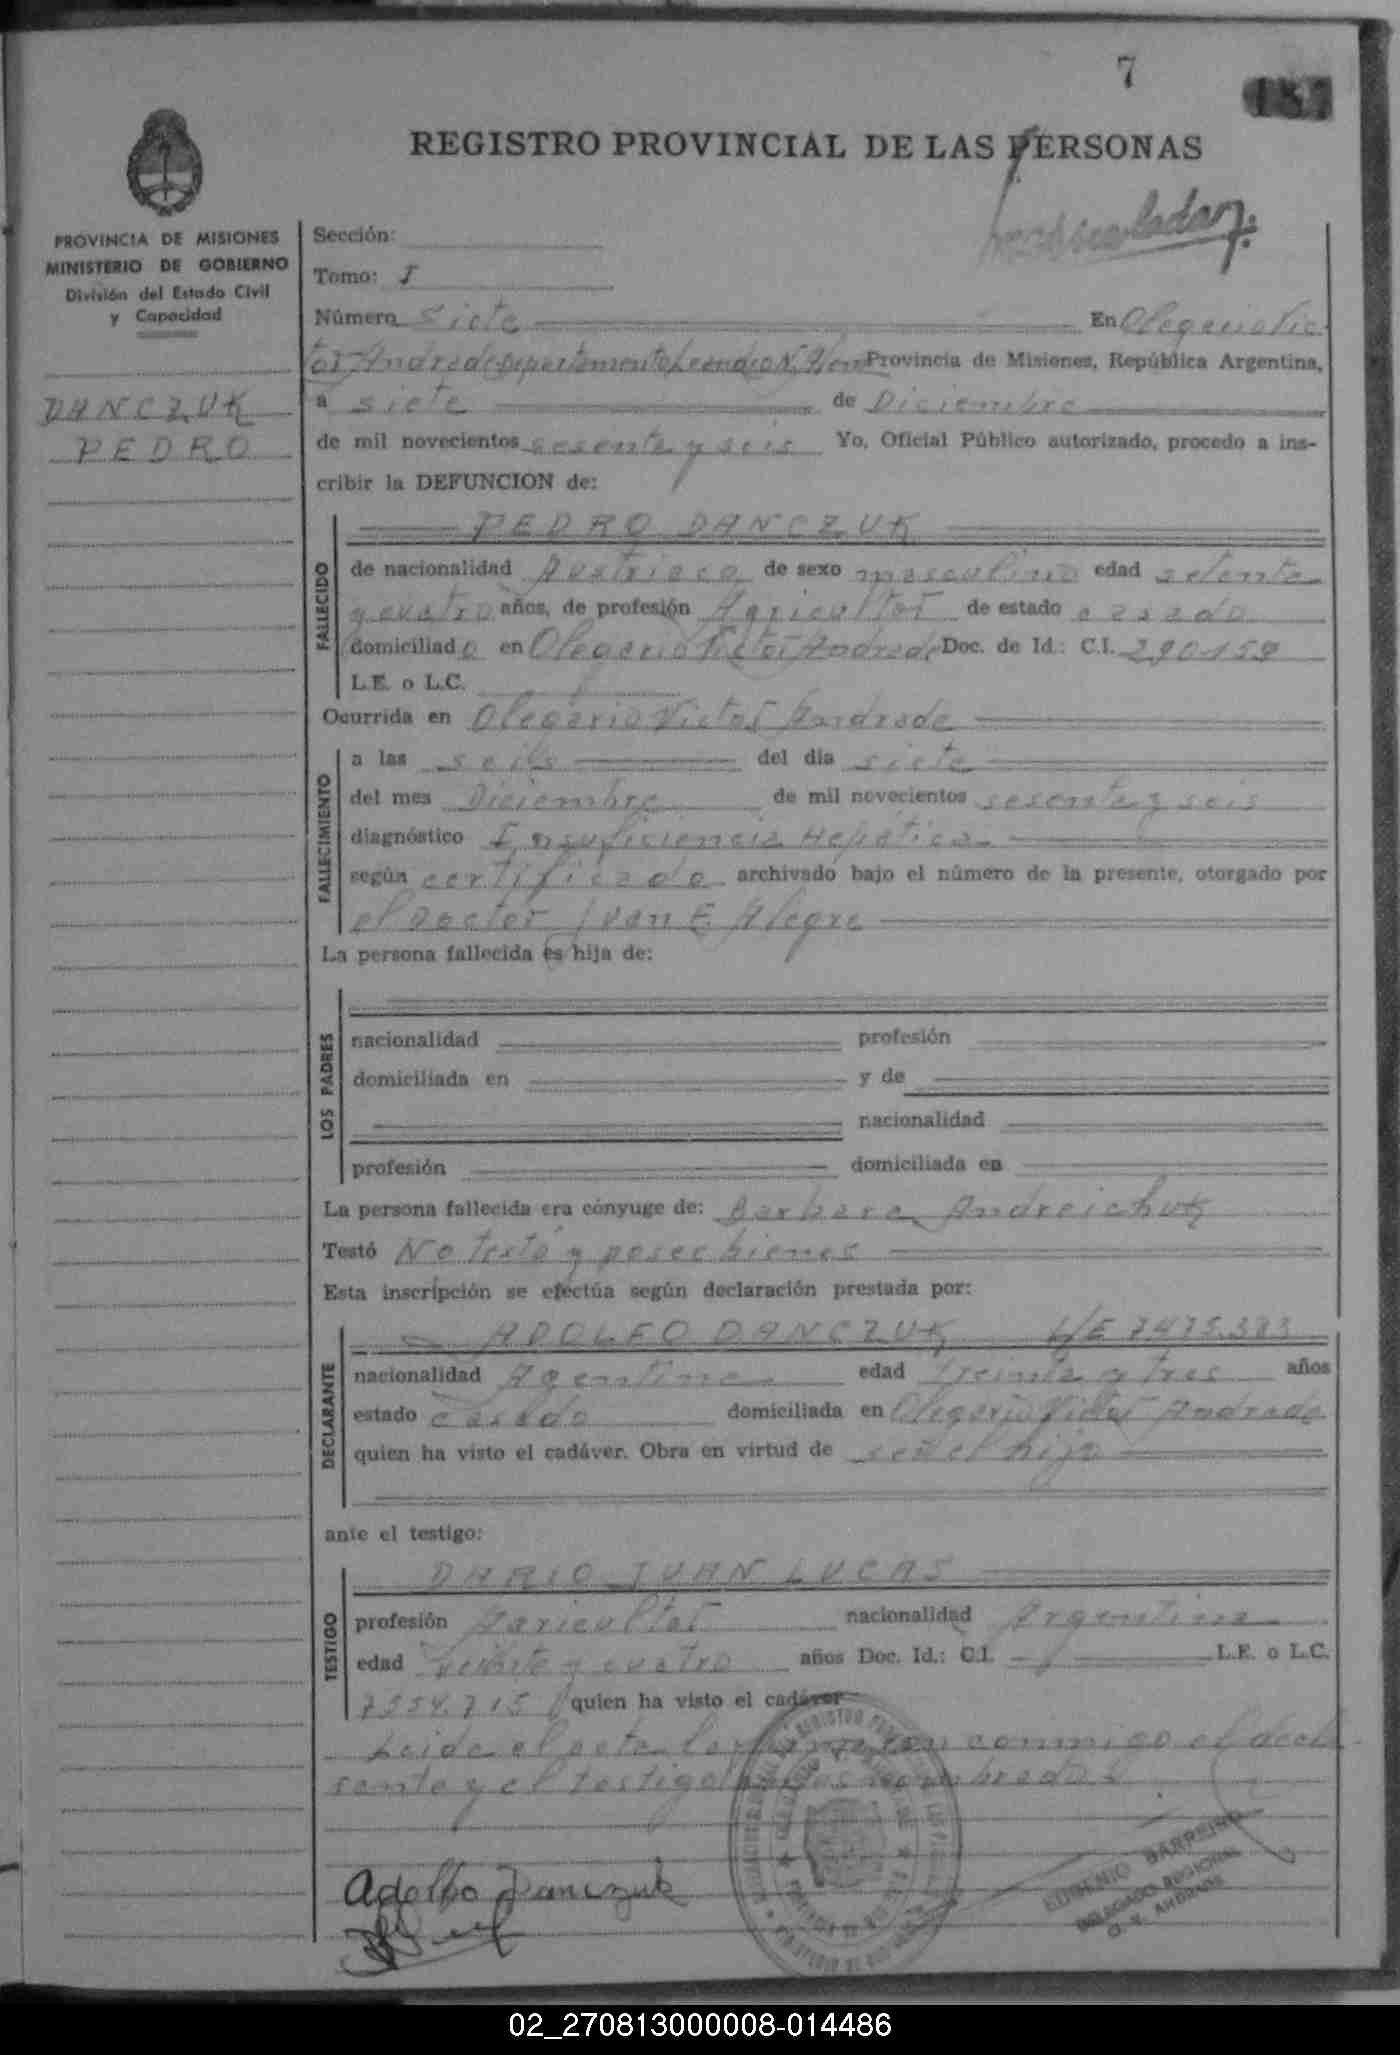 7
187
REGISTRO PROVINCIAL DE LAS PERSONAS
PROVINCIA DE MISIONES
MINISTERIO DE GOBIERNO
División del Estado Civil
y Capacidad
DANCZUK
PEDRO
Sección:
Tomo: I
Número Siete En Olegario Vic
tor Andrade Departamento Leandro N. Alem Provincia de Misiones, República Argentina,
a siete de Diciembre
de mil novecientos sesenta y seis Yo, Oficial Público autorizado, procedo a ins-
cribir la DEFUNCION de:
FALLECIDO
PEDRO DANCZUK
de nacionalidad Austriaca de sexo masculino edad setenta
y cuatro años, de profesión Agricultor de estado casado
domiciliado en Olegario Victor Andrade Doc. de Id.: C.I. 290159
L.E. o L.C.
Ocurrida en Olegario Victor Andrade
FALLECIMIENTO
a las seis del dia siete
del mes Diciembre de mil novecientos sesenta y seis
diagnóstico Insuficiencia Hepática
según certificado archivado bajo el número de la presente, otorgado por
el Doctor Juan E. Alegre
La persona fallecida es hija de:
LOS PADRES
nacionalidad profesión
domiciliada en y de
nacionalidad
profesión domiciliada en
La persona fallecida era cónyuge de: Barbara Andreichuk
Testó No testó y posee bienes
Esta inscripción se efectúa según declaración prestada por:
DECLARANTE
ADOLFO DANCZUK L/E 7.475.383
nacionalidad Agentina edad treinta y tres años
estado casado domiciliada en Olegario Victor Andrade
quien ha visto el cadáver. Obra en virtud de ser el hijo
ante el testigo:
TESTIGO
DARIO JUAN LUCAS
profesión Agricultor nacionalidad Argentina
edad veinte y cuatro años Doc. Id.: C.I. L.E. o L.C.
7554.715 quien ha visto el cadáver
Leida el acta la firman con conmigo el decla
rante y el testigo nombrados
Adolfo Danczuk
EUGENIO BARREIRO
DELEGADO REGIONAL
O. V. ANDRADE
02_270813000008-014486